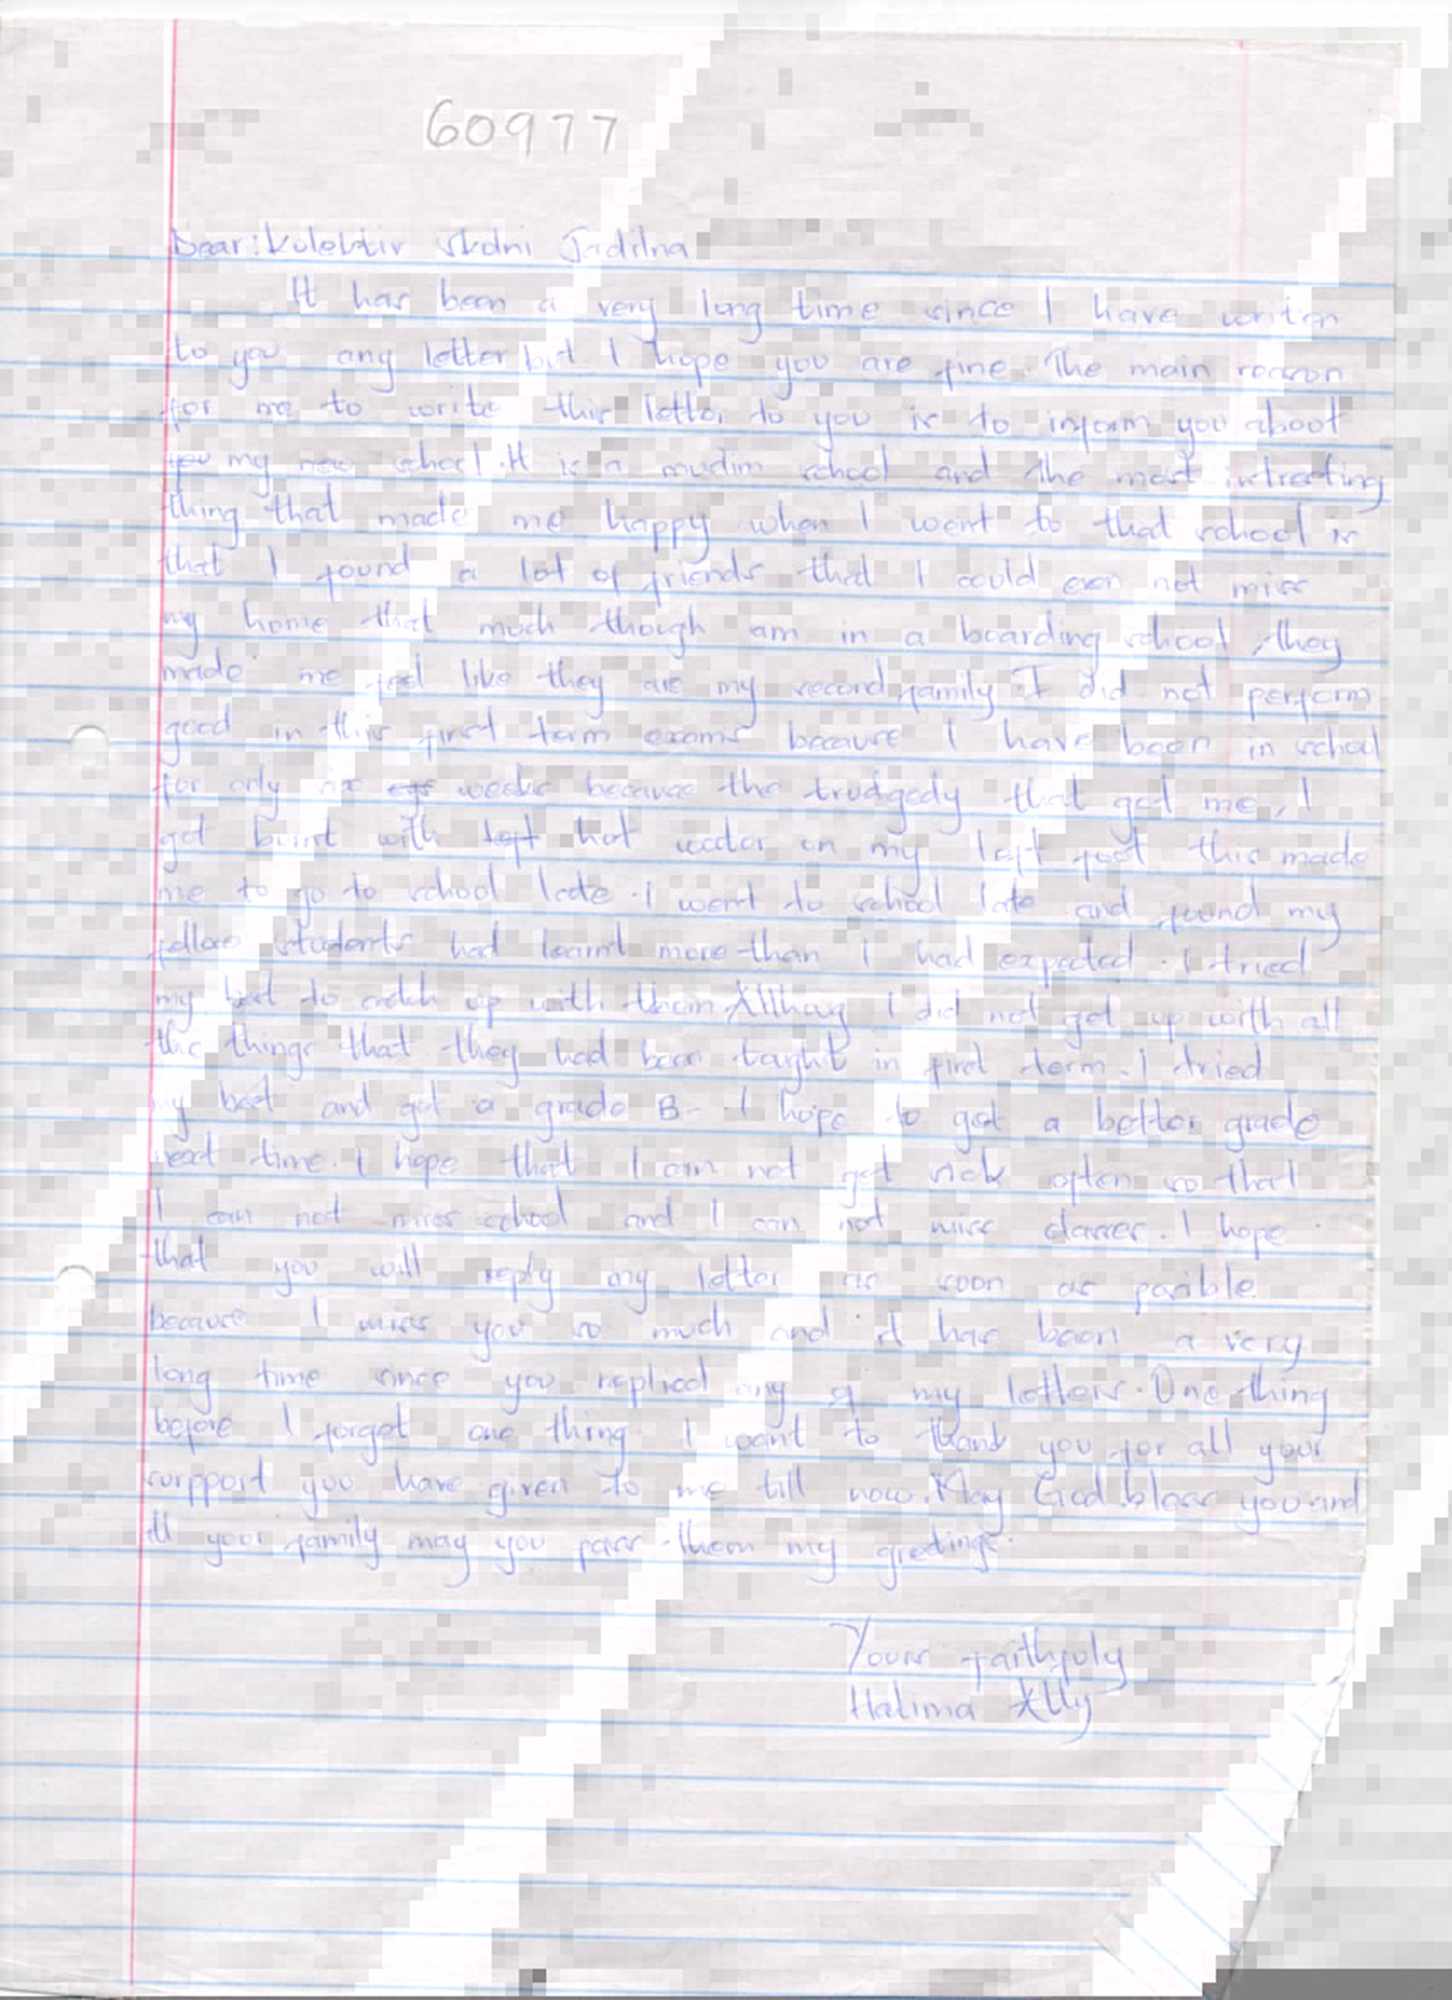 60977
Dear: Kolektiv Skolni Jidilna
It has been a very long time since I have writen
to you any letter but I hope you are fine. The main reason
for me to write this letter to you is to inform you about
you my new school. It is a muslim school and the most intresting
thing that made me happy when I went to that school is
that I found a lot of friends that I could even not miss
my home that much though am in a boarding school, they
made me feel like they are my second family I did not perform
good in this first term exams because I have been in school
for only six weeks because the trudgedy that got me, I
got burnt with left hot water on my left foot this made
me to go to school late. I went to school late and found my
fellow students had learnt more than I had expected. I tried
my best to catch up with them Allthoug I did not get up with all
the things that they had been taught in first term. I tried
my best and got a grade B- I hope to get a better grade
next time. I hope that I can not get sick often so that
I can not miss school and I can not miss classes. I hope
that you will reply my letter as soon as posible
because I miss you so much and it has been a very
long time since you replied any of my letters. One thing
before I forget one thing I want to thank you for all your
surpport you have given to me till now. May God bless you and
all your family may you pass them my greetings.
Yours faithfuly
Halima Ally